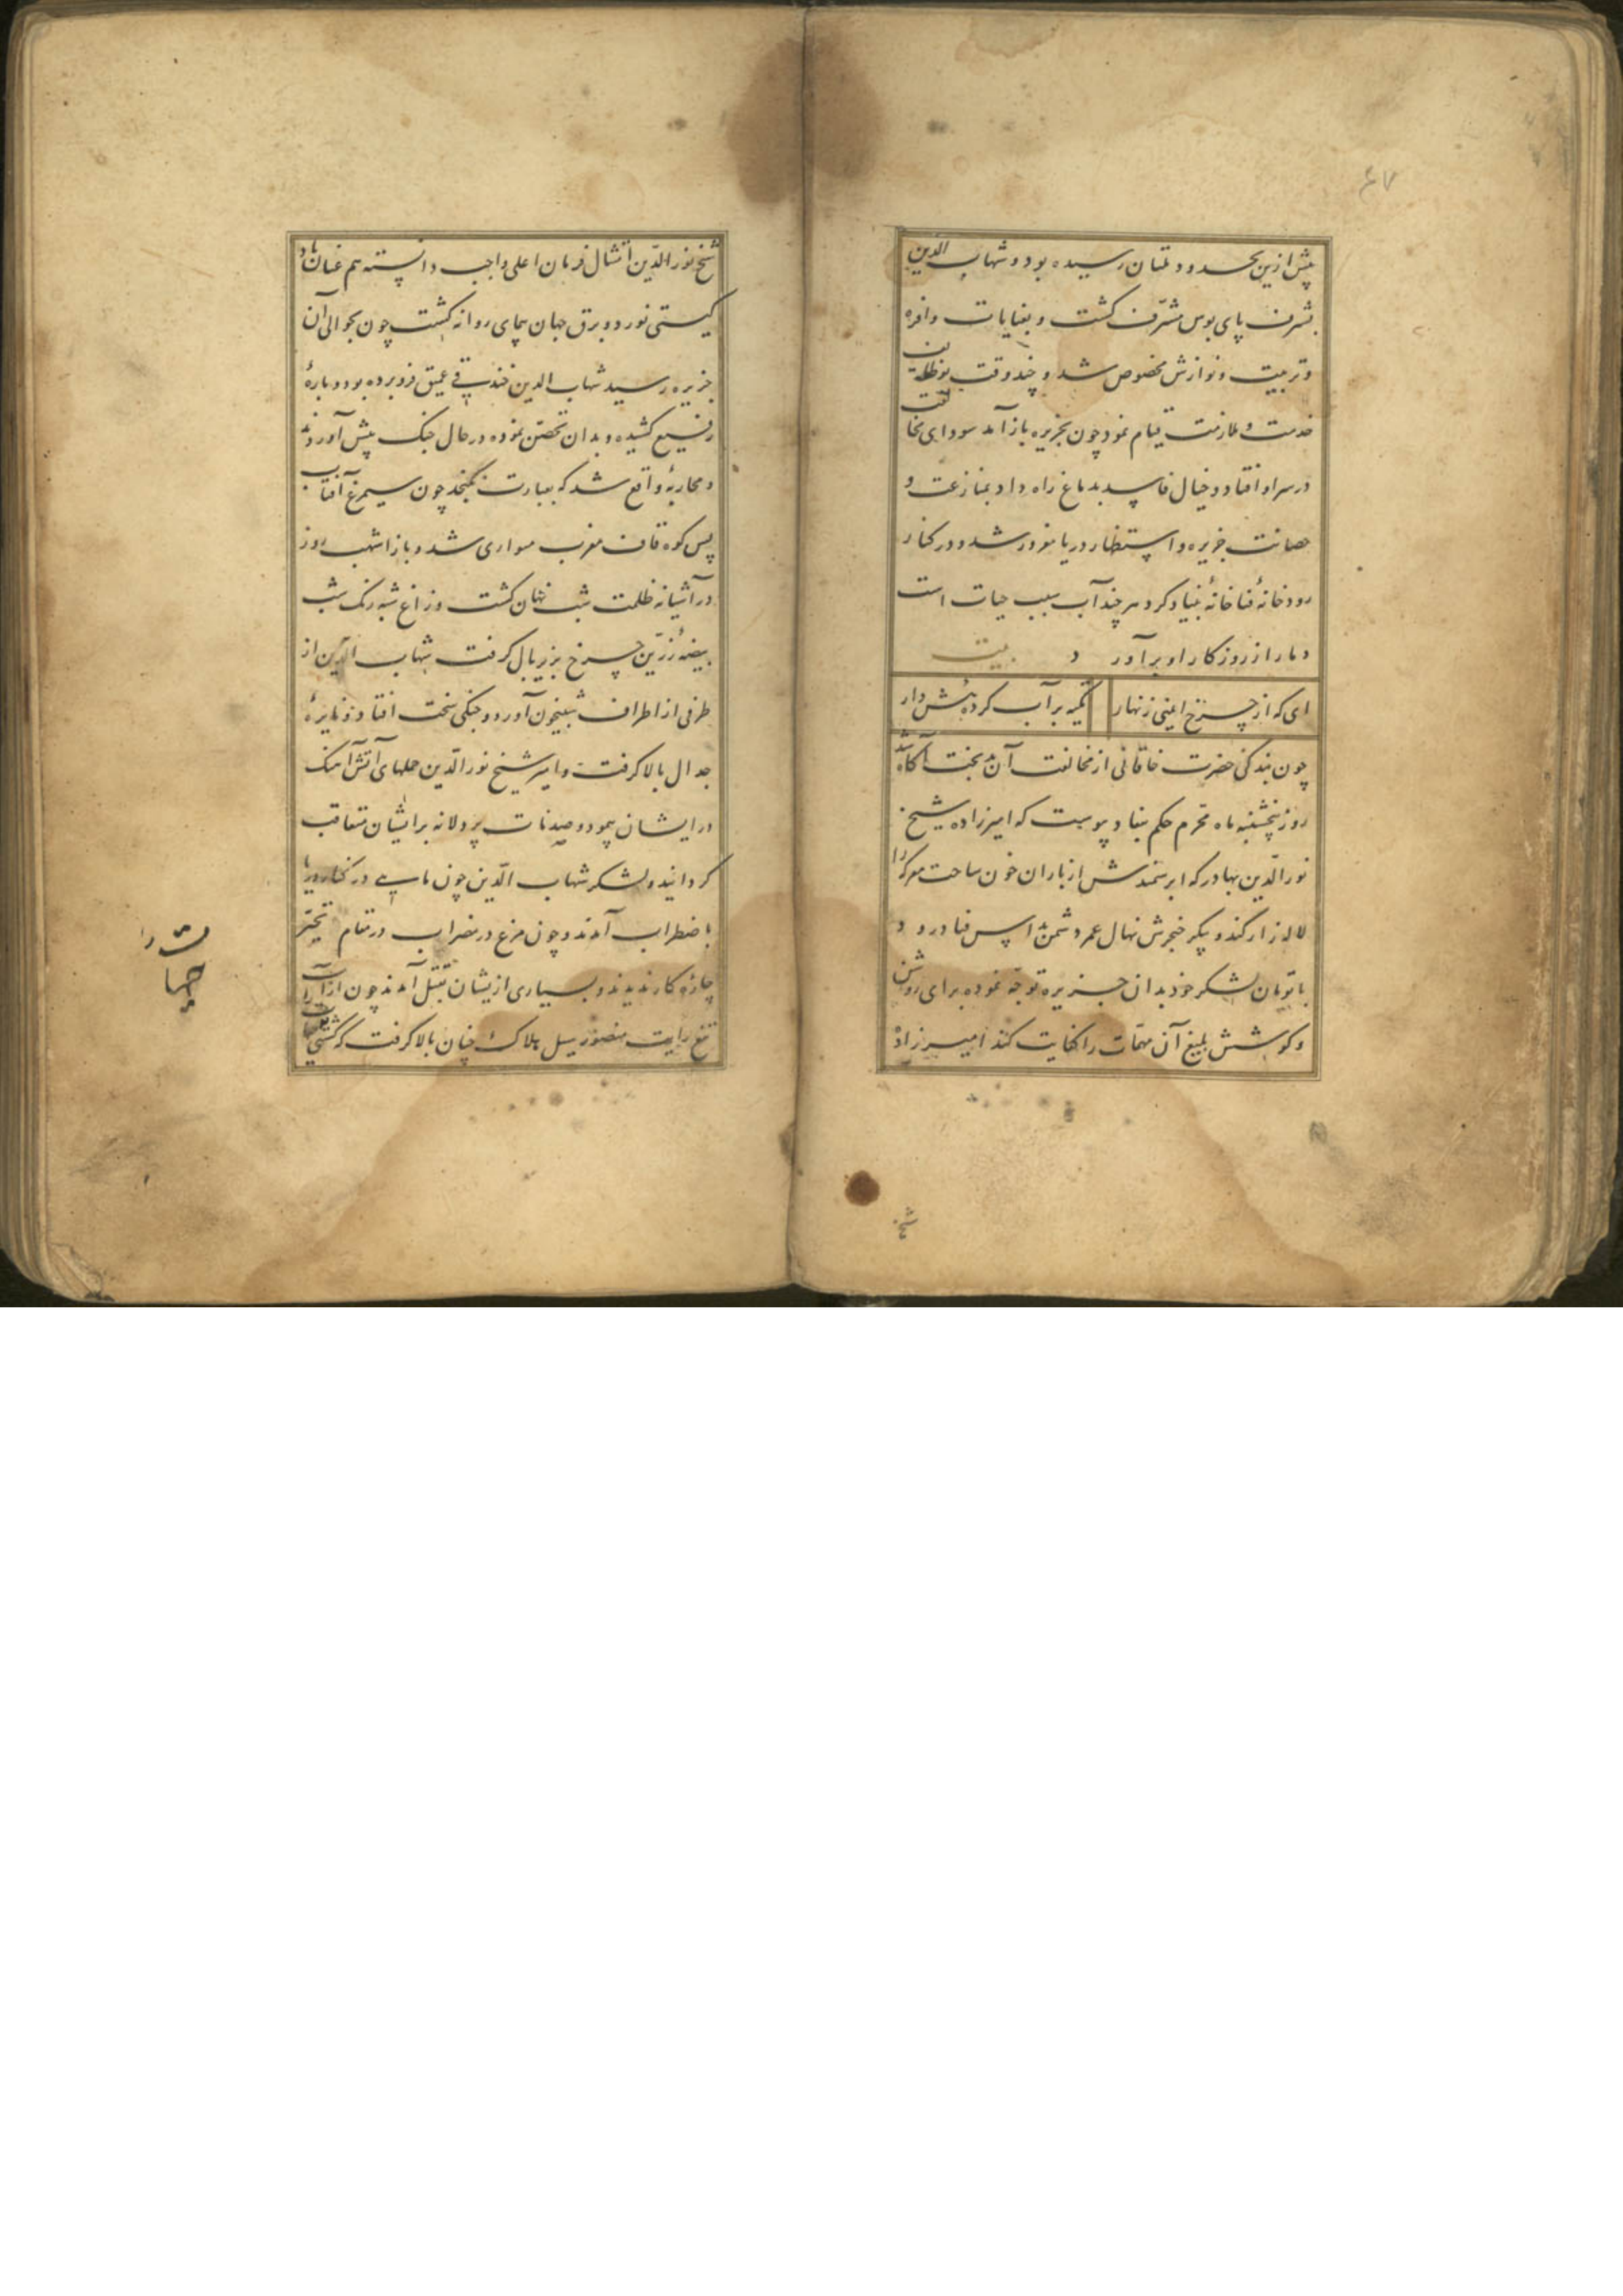 ۴۷
پیش ازین بحدود ملتان رسیده بود و شهاب الدین
بشرف پای بوس مشرّف کشت و بعنایات وافره
و تربیت و نوازش مخصوص شد و چند وقت بوظایف
خدمت و ملازمت قیام نمود چون بجزیره باز آمد سودای مخالفت
در سر او افتاد و خیال فاسد بدماغ راه داد بمنازعت و
حصانت جزیره و استظهار دریا مغرور شد و در کنار
رودخانهٔ فنا خانهٔ بنیاد کرد هر چند آب سبب حیات است
دمار از روزکار او برآورد بیت
ای که از چرخ ایمنی زنهار تکیه بر آب کردهٔ هش دار
چون بندکی حضرت خاقانی از مخالفت آن بدبخت آکاه شد
روز پنجشنبه ماه محرّم حکم بنفاد پیوست که امیرزاده شیخ
نور الدّین بهادر که ابر سمندش از باران خون ساحت معرکه را
لاله زار کند و پیکر خنجرش نهال عمر دشمن را بداس فنا درود
با تومان لشکر خود بدان جزیره توجّه نموده برای روشن
و کوشش بلیغ آن مهمّات را کفایت کند امیرزاده
شیخ
شیخ نور الدّین امتثال فرمان اعلی واجب دانسته هم عنان باد
کیتی نورد و برق جهان پیمای روانه کشت چون بحوالی آن
جزیره رسید شهاب الدین خندقی عمیق فرو برده بود و بارهٔ
رفیع کشیده و بدان تحصّن نموده در حال جنک پیش آوردند
و محاربهٔ واقع شد که بعبارت نکنجد چون سیمرغ آفتاب
پس کوه قاف مغرب متواری شد و باز اشهب روز
در آشیانه ظلمت شب نهان کشت و زاغ شبه رنک شب
بیضهٔ زرّین چرخ بزیر بال کرفت شهاب الدّین از
طرفی از اطراف شبیخون آورد و جنکی سخت افتاد و نایرهٔ
جدال بالا کرفت و امیر شیخ نور الدّین حملهای آتش آهنک
در ایشان پیمود و صدمات پردلانه بر ایشان متعاقب
کردانید و لشکر شهاب الدّین چون ماهی در کنار دریا
باضطراب آمدند و چون مرغ در مضراب در مقام تحیّر
چارهٔ کار ندیدند و بسیاری ازیشان بقتل آمدند چون از آب
تیغ رایت منصور سیل هلاک چنان بالا کرفت که کشتی
حیات را